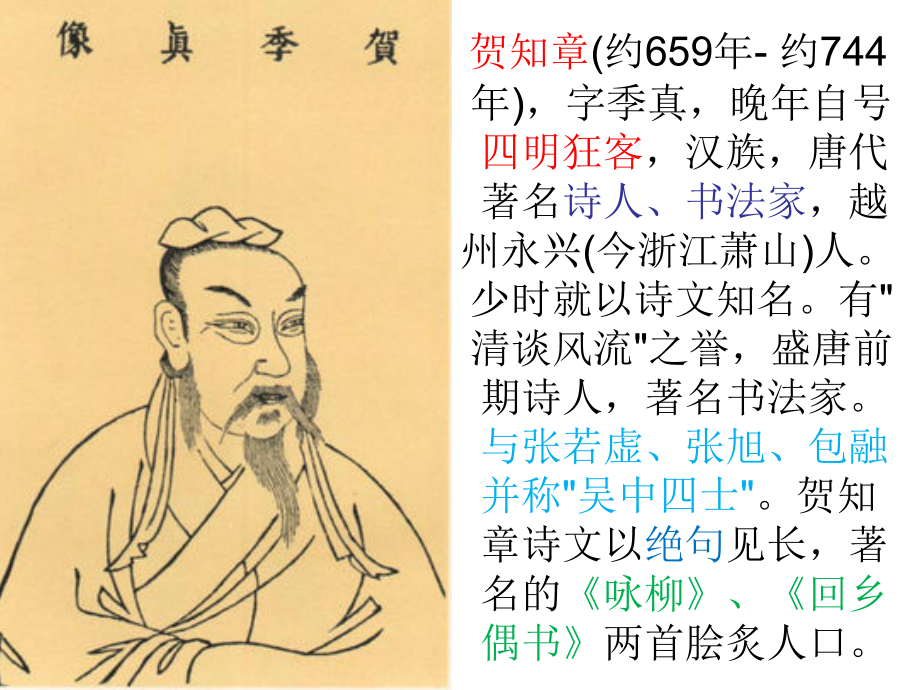 賀季眞像
贺知章(约659年- 约744
年)，字季真，晚年自号
四明狂客，汉族，唐代
著名诗人、书法家，越
州永兴(今浙江萧山)人。
少时就以诗文知名。有"
清谈风流"之誉，盛唐前
期诗人，著名书法家。
与张若虚、张旭、包融
并称"吴中四士"。贺知
章诗文以绝句见长，著
名的《咏柳》、《回乡
偶书》两首脍炙人口。